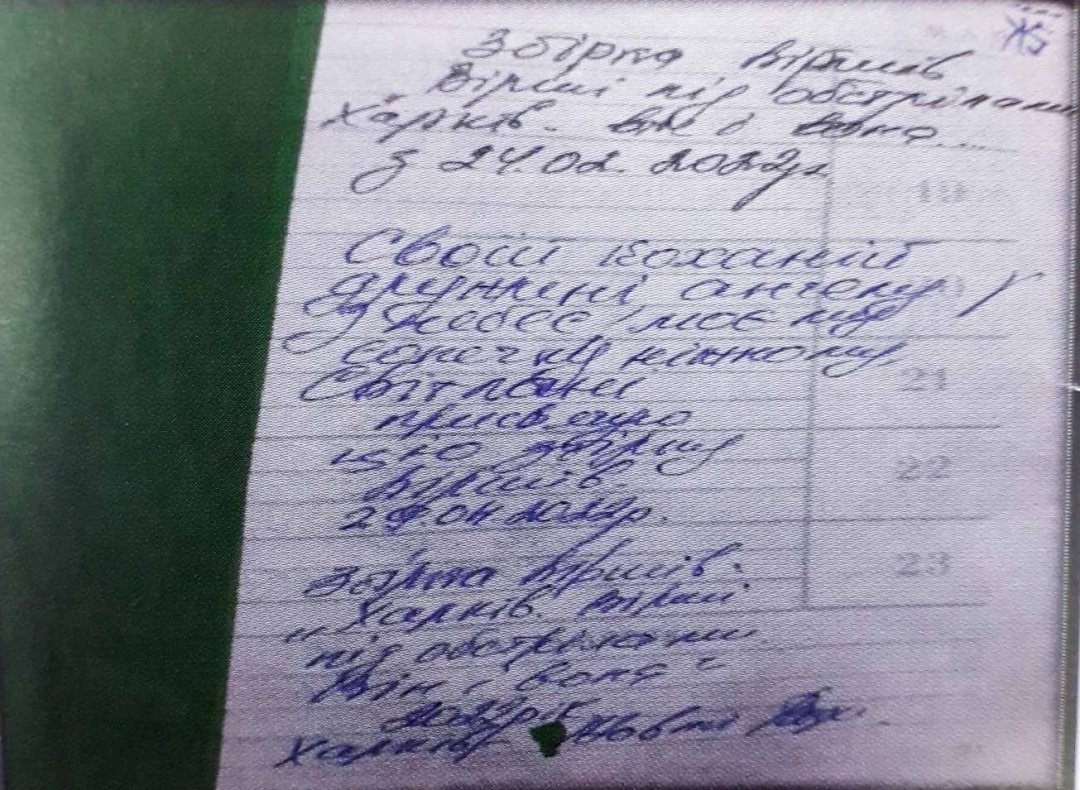 Збірка віршів
"Вірші під обстрілами
Харків. Він і вона...
з 24.02.2022р.
Своїй коханій
дружині, ангелу
з небес, моєму
сонечку ніжному
Світлані
присвячую
цю збірку
віршів.
04 2022р.
Збірка віршів.
"Харків. Вірші
під обстрілами.
Він і вона"
2022рік
Харків
19
21
22
23